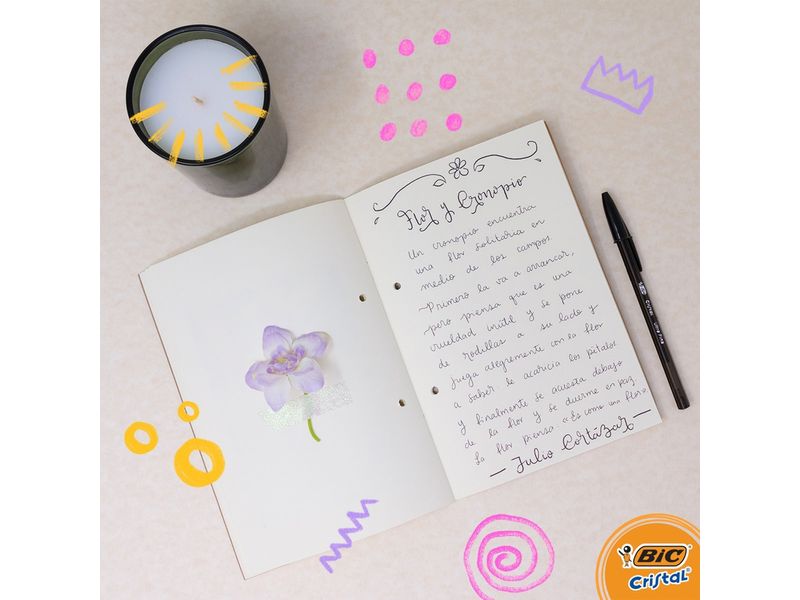 Flor y Cronopio
Un cronopio encuentra
una flor solitaria en
medio de los campos
~Primero la va a arrancar,
pero piensa que es una
crueldad inútil y se pone
de rodillas a su lado y
juega alegremente con la flor
a saber: le acaricia los pétalos
y finalmente se acuesta debajo
de la flor y se duerme en paz.
La flor piensa: «Es como una flor»
— Julio Cortázar —
BIC Cristal
BIC
Cristal